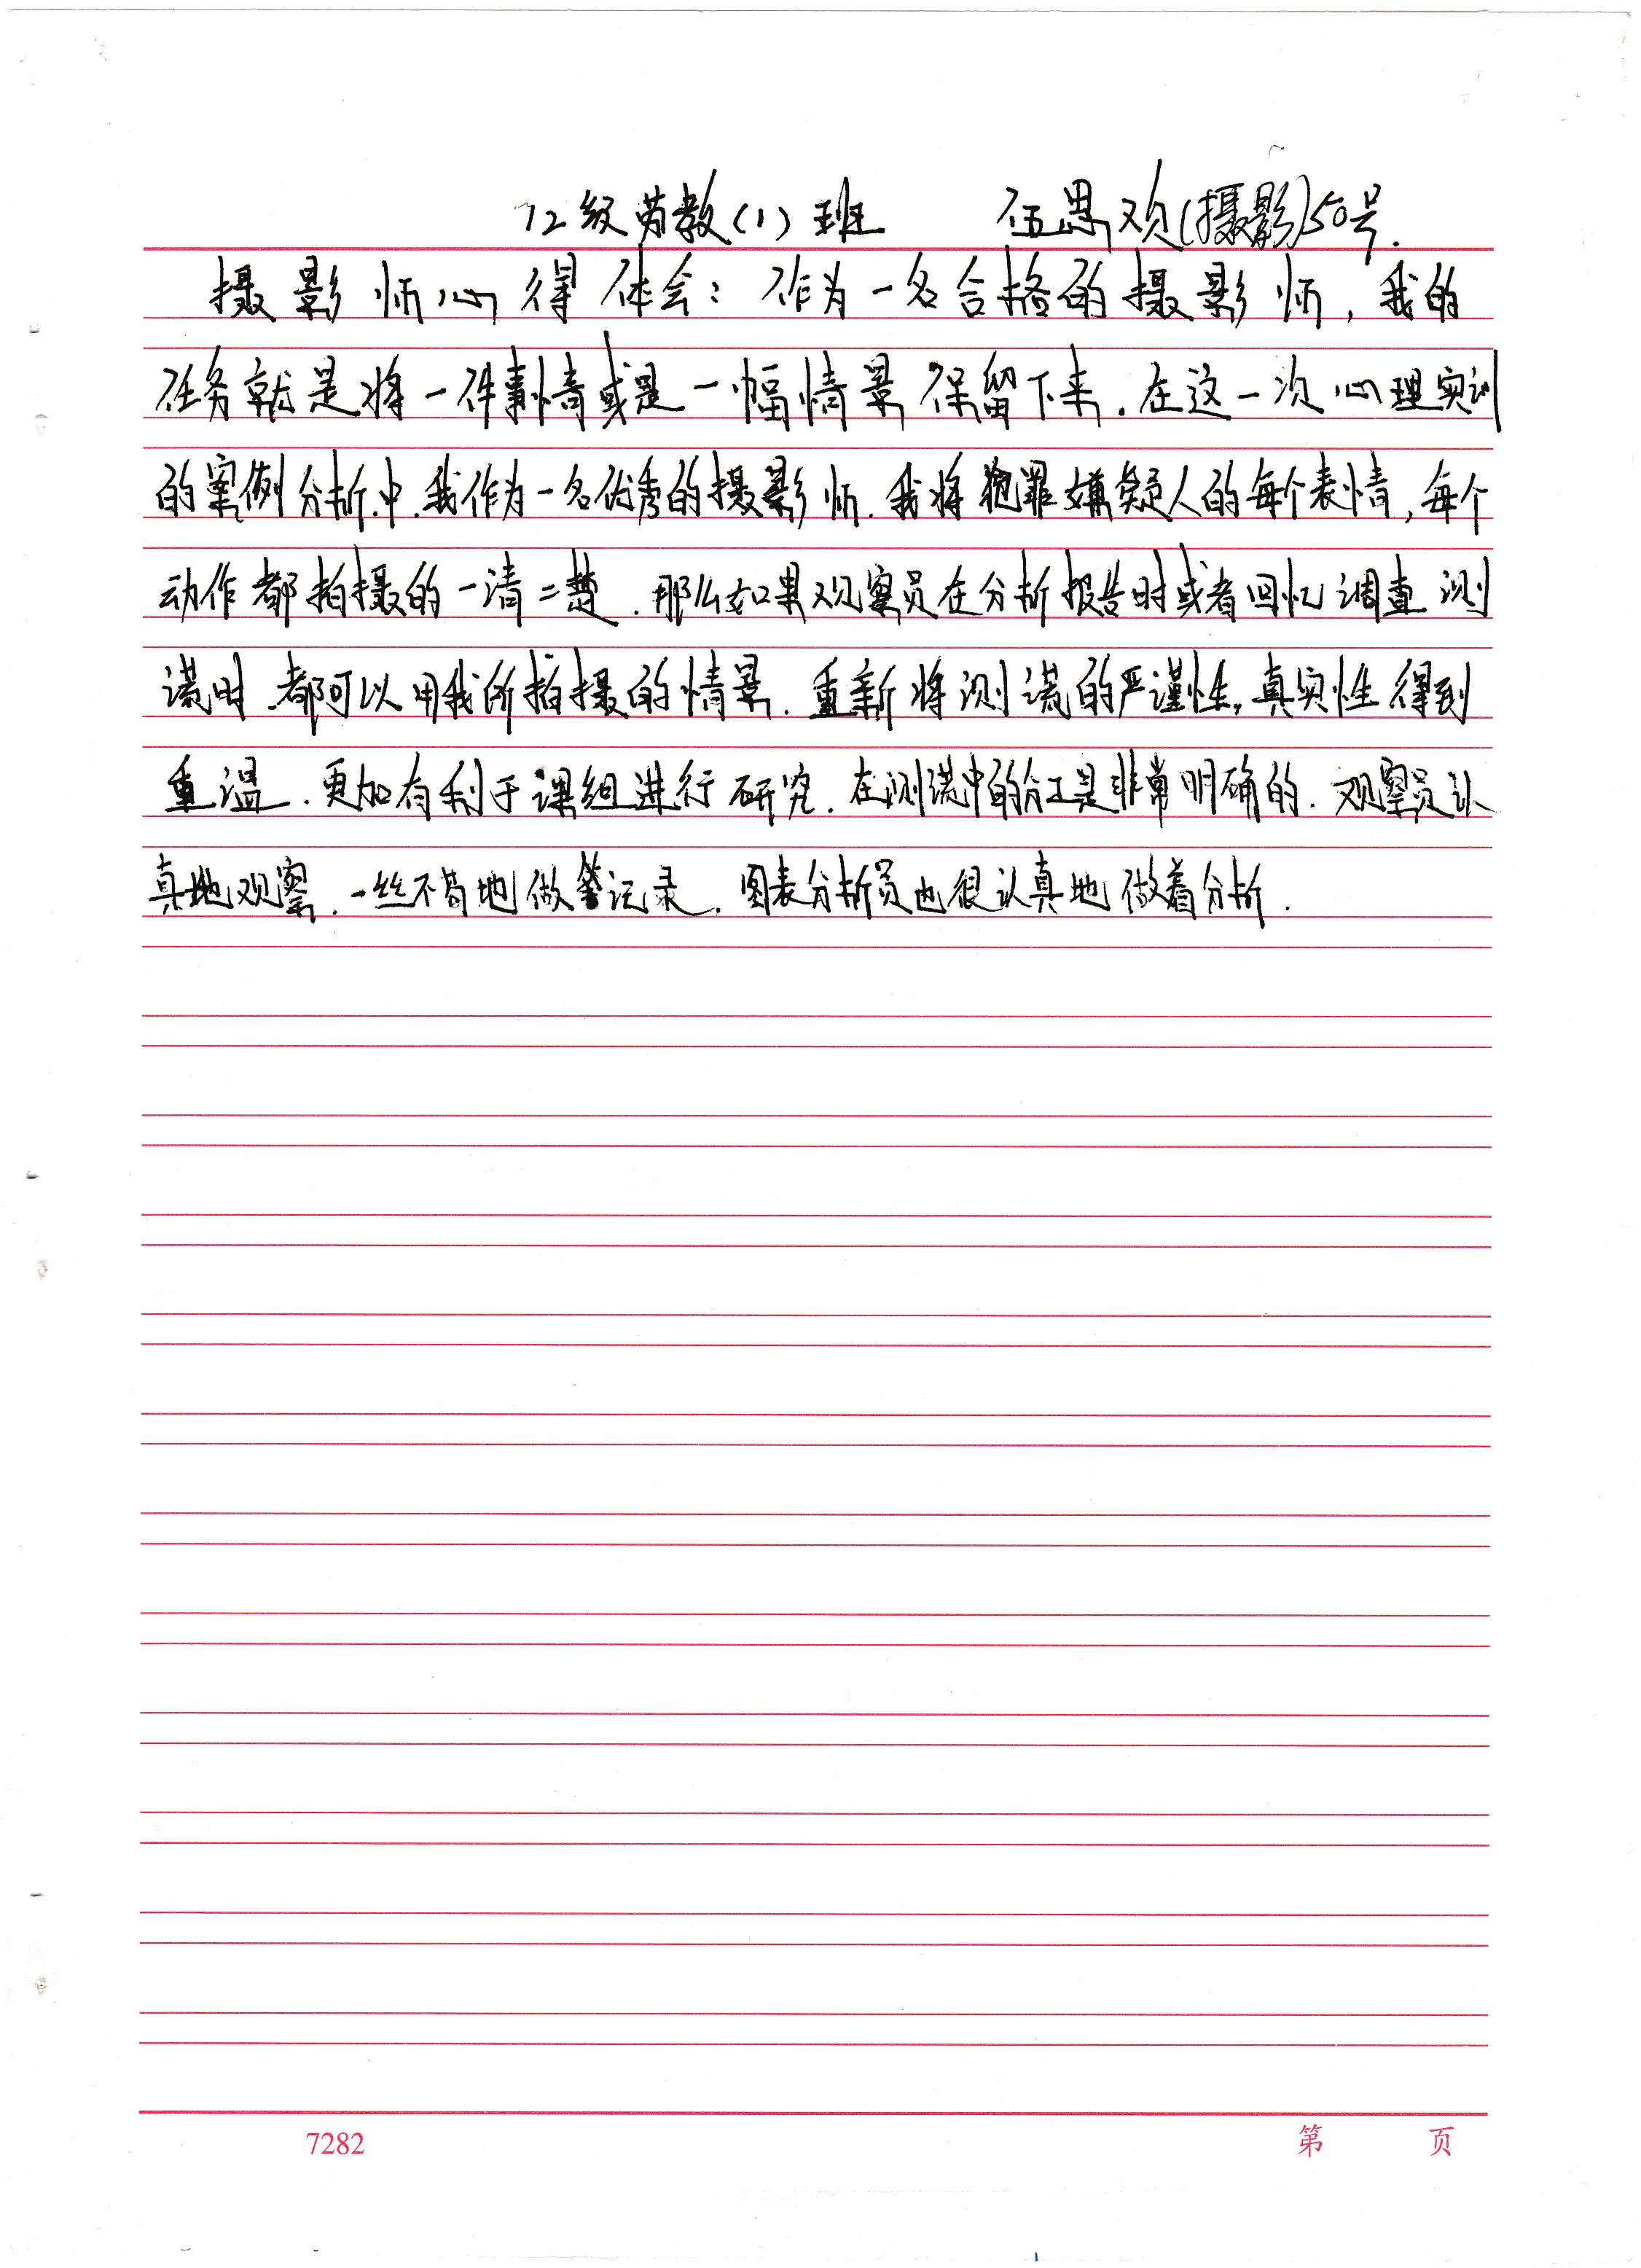 12级英教(1)班 伍思欢(摄影)50号.
摄影师心得体会：作为一名合格的摄影师，我的
任务就是将一件事情或是一幅情景保留下来.在这一次心理实训
的案例分析中.我作为一名优秀的摄影师.我将犯罪嫌疑人的每个表情，每个
动作都拍摄的一清二楚.那么如果观察员在分析报告时或者回忆调查测
谎时.都可以用我所拍摄的情景.重新将测谎的严谨性,真实性得到
重温.更加有利于课组进行研究.在测谎中的分工是非常明确的.观察员认
真地观察.一丝不苟地做笔记录.图表分析员也很认真地做着分析.
7282 第 页